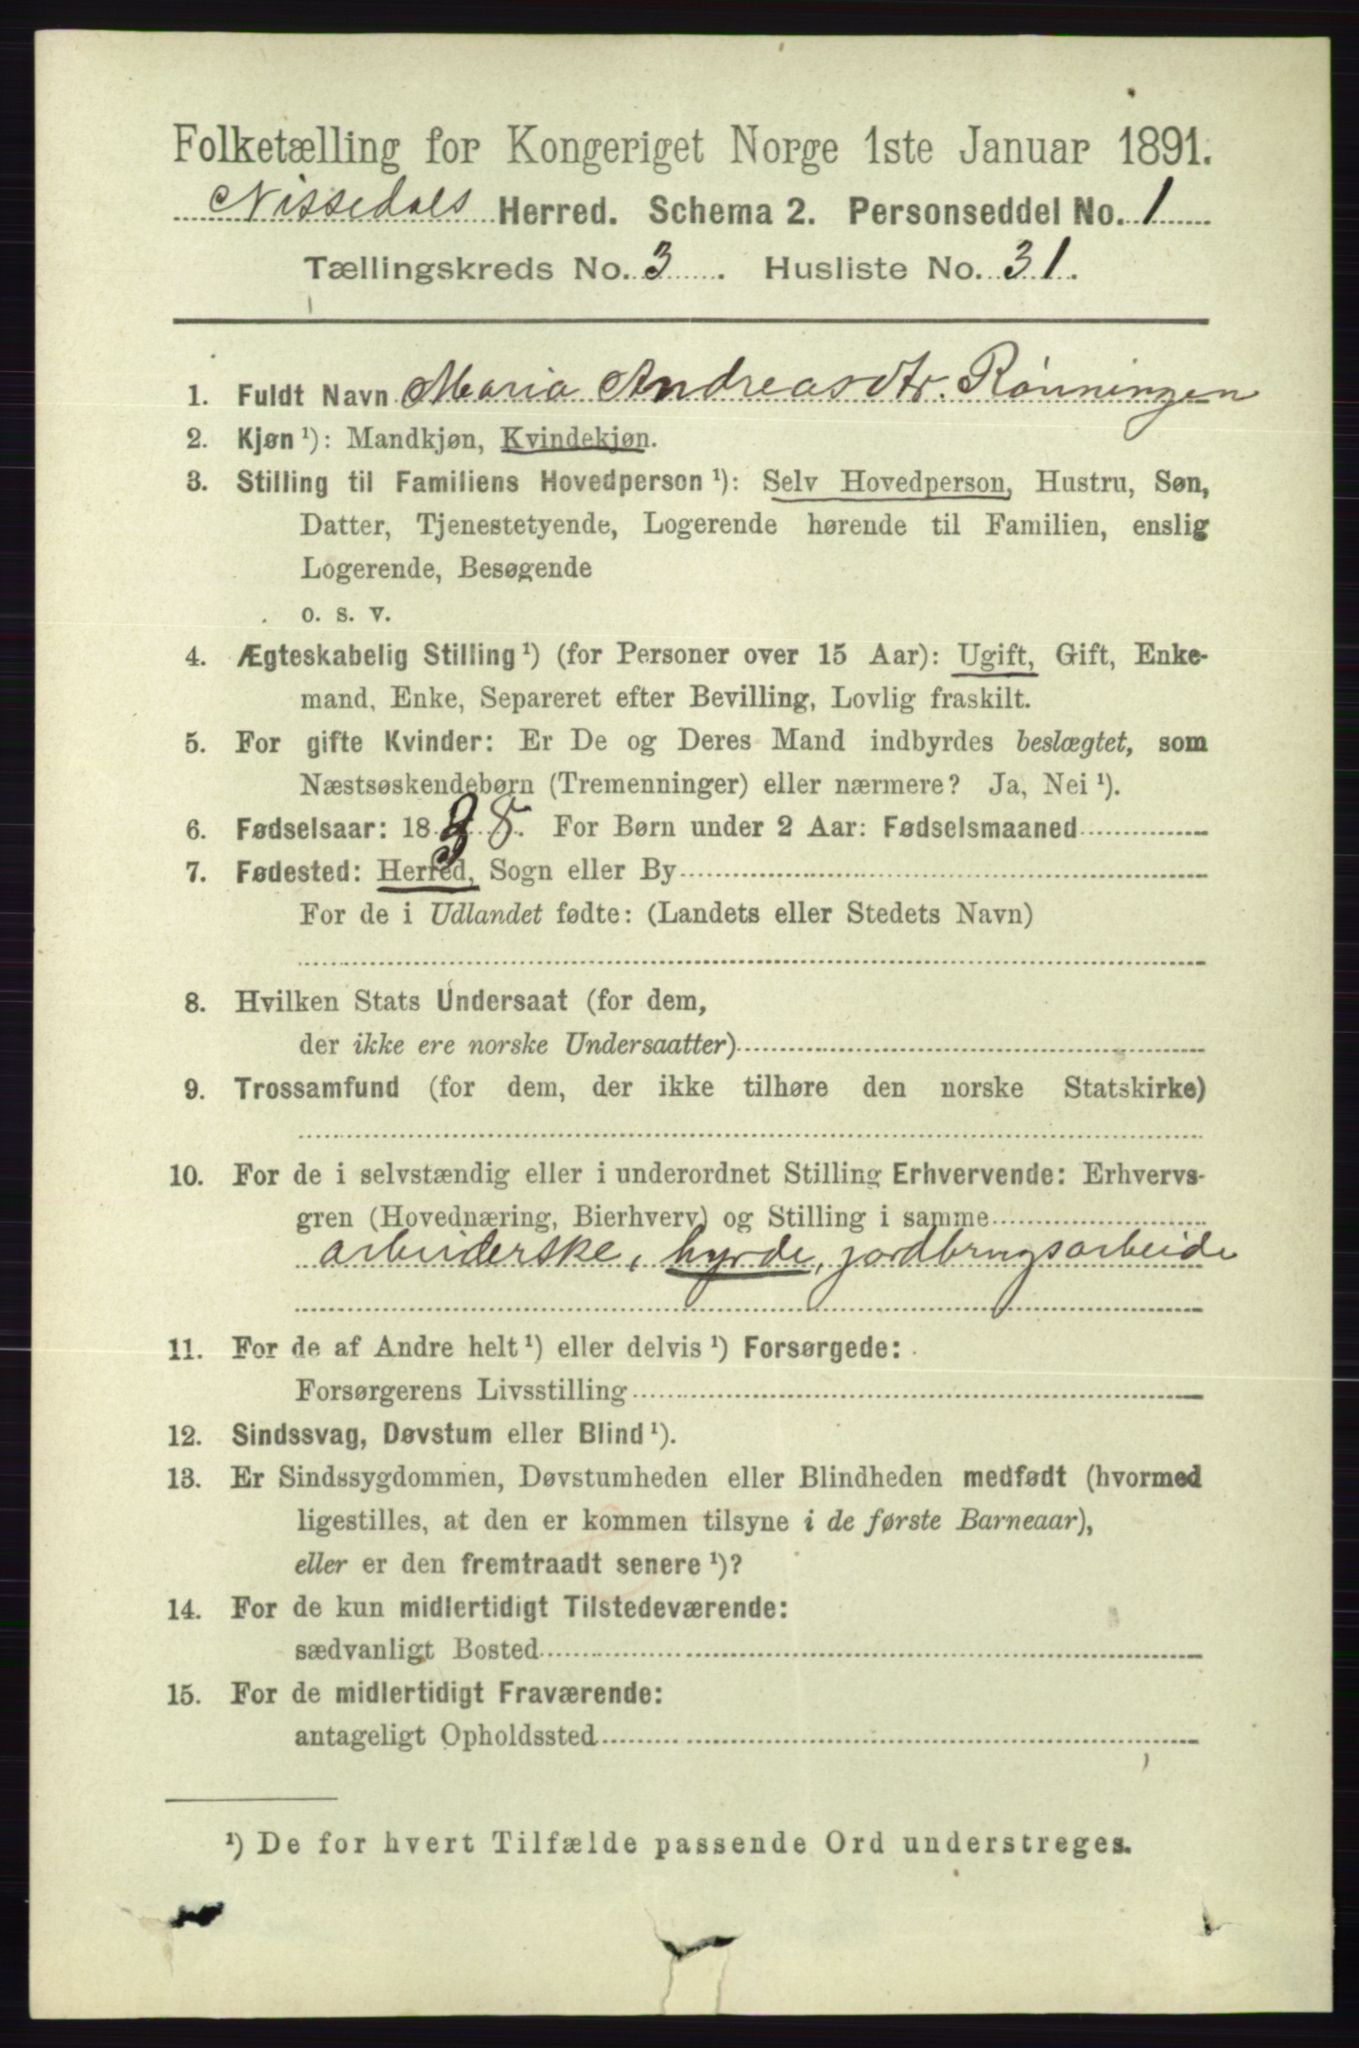 Folketælling for Kongeriget Norge 1ste Januar 1891.
Nissedals Herred. Schema 2. Personseddel No. 1
Tællingskreds No. 3. Husliste No. 31.
1. Fuldt Navn Maria Andreasdtr. Rønningen
2. Kjøn ¹): Mandkjøn, Kvindekjøn.
3. Stilling til Familiens Hovedperson ¹): Selv Hovedperson, Hustru, Søn,
Datter, Tjenestetyende, Logerende hørende til Familien, enslig
Logerende, Besøgende
o. s. v.
4. Ægteskabelig Stilling ¹) (for Personer over 15 Aar): Ugift, Gift, Enke-
mand, Enke, Separeret efter Bevilling, Lovlig fraskilt.
5. For gifte Kvinder: Er De og Deres Mand indbyrdes beslægtet, som
Næstsøskendebørn (Tremenninger) eller nærmere? Ja, Nei ¹).
6. Fødselsaar: 1838. For Børn under 2 Aar: Fødselsmaaned
7. Fødested: Herred, Sogn eller By
For de i Udlandet fødte: (Landets eller Stedets Navn)
8. Hvilken Stats Undersaat (for dem,
der ikke ere norske Undersaatter)
9. Trossamfund (for dem, der ikke tilhøre den norske Statskirke)
10. For de i selvstændig eller i underordnet Stilling Erhvervende: Erhvervs-
gren (Hovednæring, Bierhverv) og Stilling i samme
arbeiderske, hyrde, jordbrugsarbeide
11. For de af Andre helt ¹) eller delvis ¹) Forsørgede:
Forsørgerens Livsstilling
12. Sindssvag, Døvstum eller Blind ¹).
13. Er Sindssygdommen, Døvstumheden eller Blindheden medfødt (hvormed
ligestilles, at den er kommen tilsyne i de første Barneaar),
eller er den fremtraadt senere ¹)?
14. For de kun midlertidigt Tilstedeværende:
sædvanligt Bosted
15. For de midlertidigt Fraværende:
antageligt Opholdssted
¹) De for hvert Tilfælde passende Ord understreges.